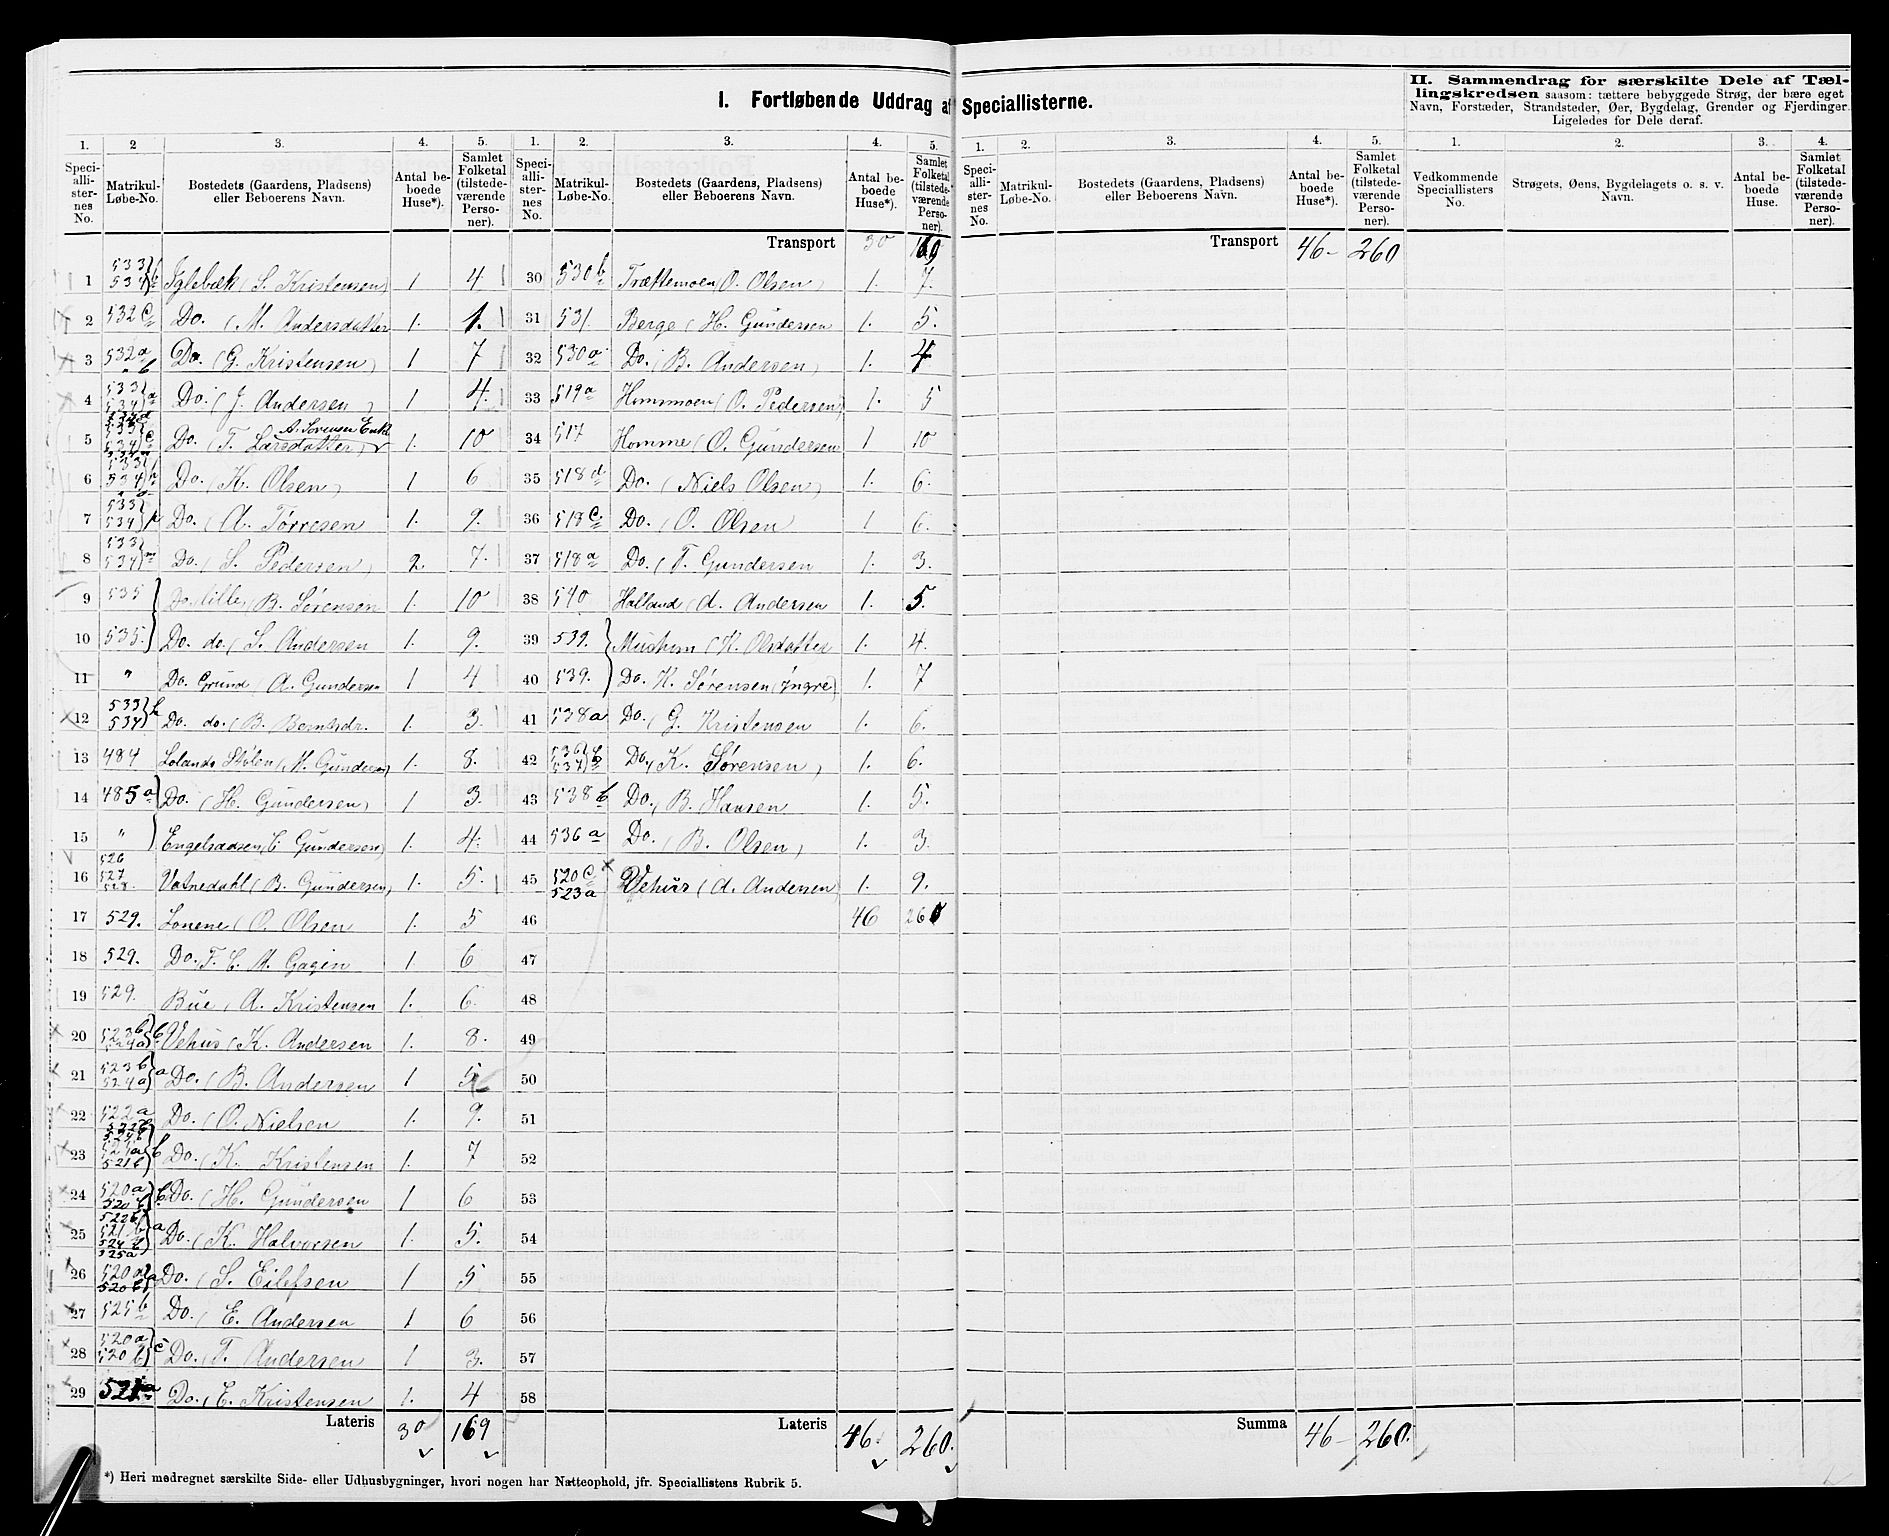 I. Fortløbende Uddrag af Speciallisterne.
II. Sammendrag for særskilte Dele af Tæl-
lingskredsen saasom: tættere bebyggede Strøg, der bære eget
Navn, Forstæder, Strandsteder, Øer, Bygdelag, Grender og Fjerdinger.
Ligeledes for Dele deraf.
1. 2 3. 4. 5. 1. 2. 3. 4. 5. 1. 2. 3. 4. 5. 1. 2. 3. 4.
Speciallisternes No. Matrikul-Løbe-No. Bostedets (Gaardens, Pladsens) eller Beboerens Navn. Antal beboede Huse*). Samlet Folketal (tilstedeværende Personer).
Speciallisternes No. Matrikul-Løbe-No. Bostedets (Gaardens, Pladsens) eller Beboerens Navn. Antal beboede Huse*). Samlet Folketal (tilstedeværende Personer).
Speciallisternes No. Matrikul-Løbe-No. Bostedets (Gaardens, Pladsens) eller Beboerens Navn. Antal beboede Huse*). Samlet Folketal (tilstedeværende Personer).
Vedkommende Speciallisters No. Strøgets, Øens, Bygdelagets o. s. v. Navn. Antal beboede Huse. Samlet Folketal (tilstedeværende Personer).
1 533 534 Iglebæk (S. Kristensen) 1 4
2 532 c Do. (M. Andersdatter 1. 1.
3 532 a b Do. (G. Kristensen) 1 7
4 533 534 a Do. (J. Andersen) 1 4.
5 533 534 c Do. (T. Larsdatter) A. Sørensen Enke 1. 10
6 533 534 Do. (K. Olsen) 1 6
7 533 534 Do. (A. Tørresen 1. 9.
8 533 534 m Do. (S. Pedersen) 2. 7.
9 535 Do. lille (B. Sørensen 1. 10
10 535. Do. do. (S. Andersen 1. 9.
11 " Do. Grund (A. Gundersen 1 4
12 533 534 Do. do. (B. Berntsdr. 1. 3.
13 484 Lolands Stølen (N. Gundersen) 1. 8.
14 485 a Do. (H. Gundersen) 1 3.
15 " (C Gundersen) 1. 4.
16 526 527 528. Vatnedahl (B. Gundersen) 1. 5.
17 529. Lonene (O. Olsen 1. 5
18 529. Do. T. C. M. Gagin 1 6
19 529. Bue (A. Kristensen 1. 6.
20 523 b 524 a b Vehus (K. Andersen 1. 8.
21 523 b 524 a a Do. (B. Andersen 1 5
22 522 a Do. (O. Nielsen 1. 9.
23 521 a 521 b Do. (K. Kristensen 1. 7
24 520 a 520 b Do. (H. Gundersen 1 6
25 522 b 521 b 524 b 525 a a Do. (K. Halvorsen 1. 5.
26 520 a 520 b a Do. (S. Eilefsen 1 5
27 525 b Do. (E. Andersen 1 6
28 520 a 520 b c Do. (T. Andersen 1 3.
29 521 a Do. (E. Kristensen 1. 4
Lateris 30 169
Transport 30 169
30 530 b Trættemoen (O. Olsen) 1. 7.
31 531. Berge (H. Gundersen 1. 5.
32 530 a Do. (B. Andersen) 1. 4.
33 519 a Hommoen (O. Pedersen) 1. 5
34 517 Homme (O. Gundersen 1 10
35 518 d Do. (Niels Olsen) 1. 6.
36 518 c Do. (O. Olsen) 1 6.
37 518 a Do. (T. Gundersen 1. 3.
38 540 Halland (A. Andersen 1. 5.
39 539. (K. Olsdatter 1. 4.
40 539. Do. K. Sørensen (Yngre) 1. 7
41 538 a Do. (G. Kristensen 1. 6.
42 536 537 b Do. (K. Sørensen) 1. 6.
43 538 b Do. (B. Hansen 1. 5.
44 536 a Do. (B. Olsen) 1. 3.
45 520 c 523 a Vehus (A. Andersen) 1. 9.
46 46 260
47
48
49
50
51
52
53
54
55
56
57
58
Lateris 46. 260.
Transport 46 - 260
Summa 46 - 260.
*) Heri medregnet særskilte Side- eller Udhusbygninger, hvori nogen har Natteophold, jfr. Speciallistens Rubrik 5.